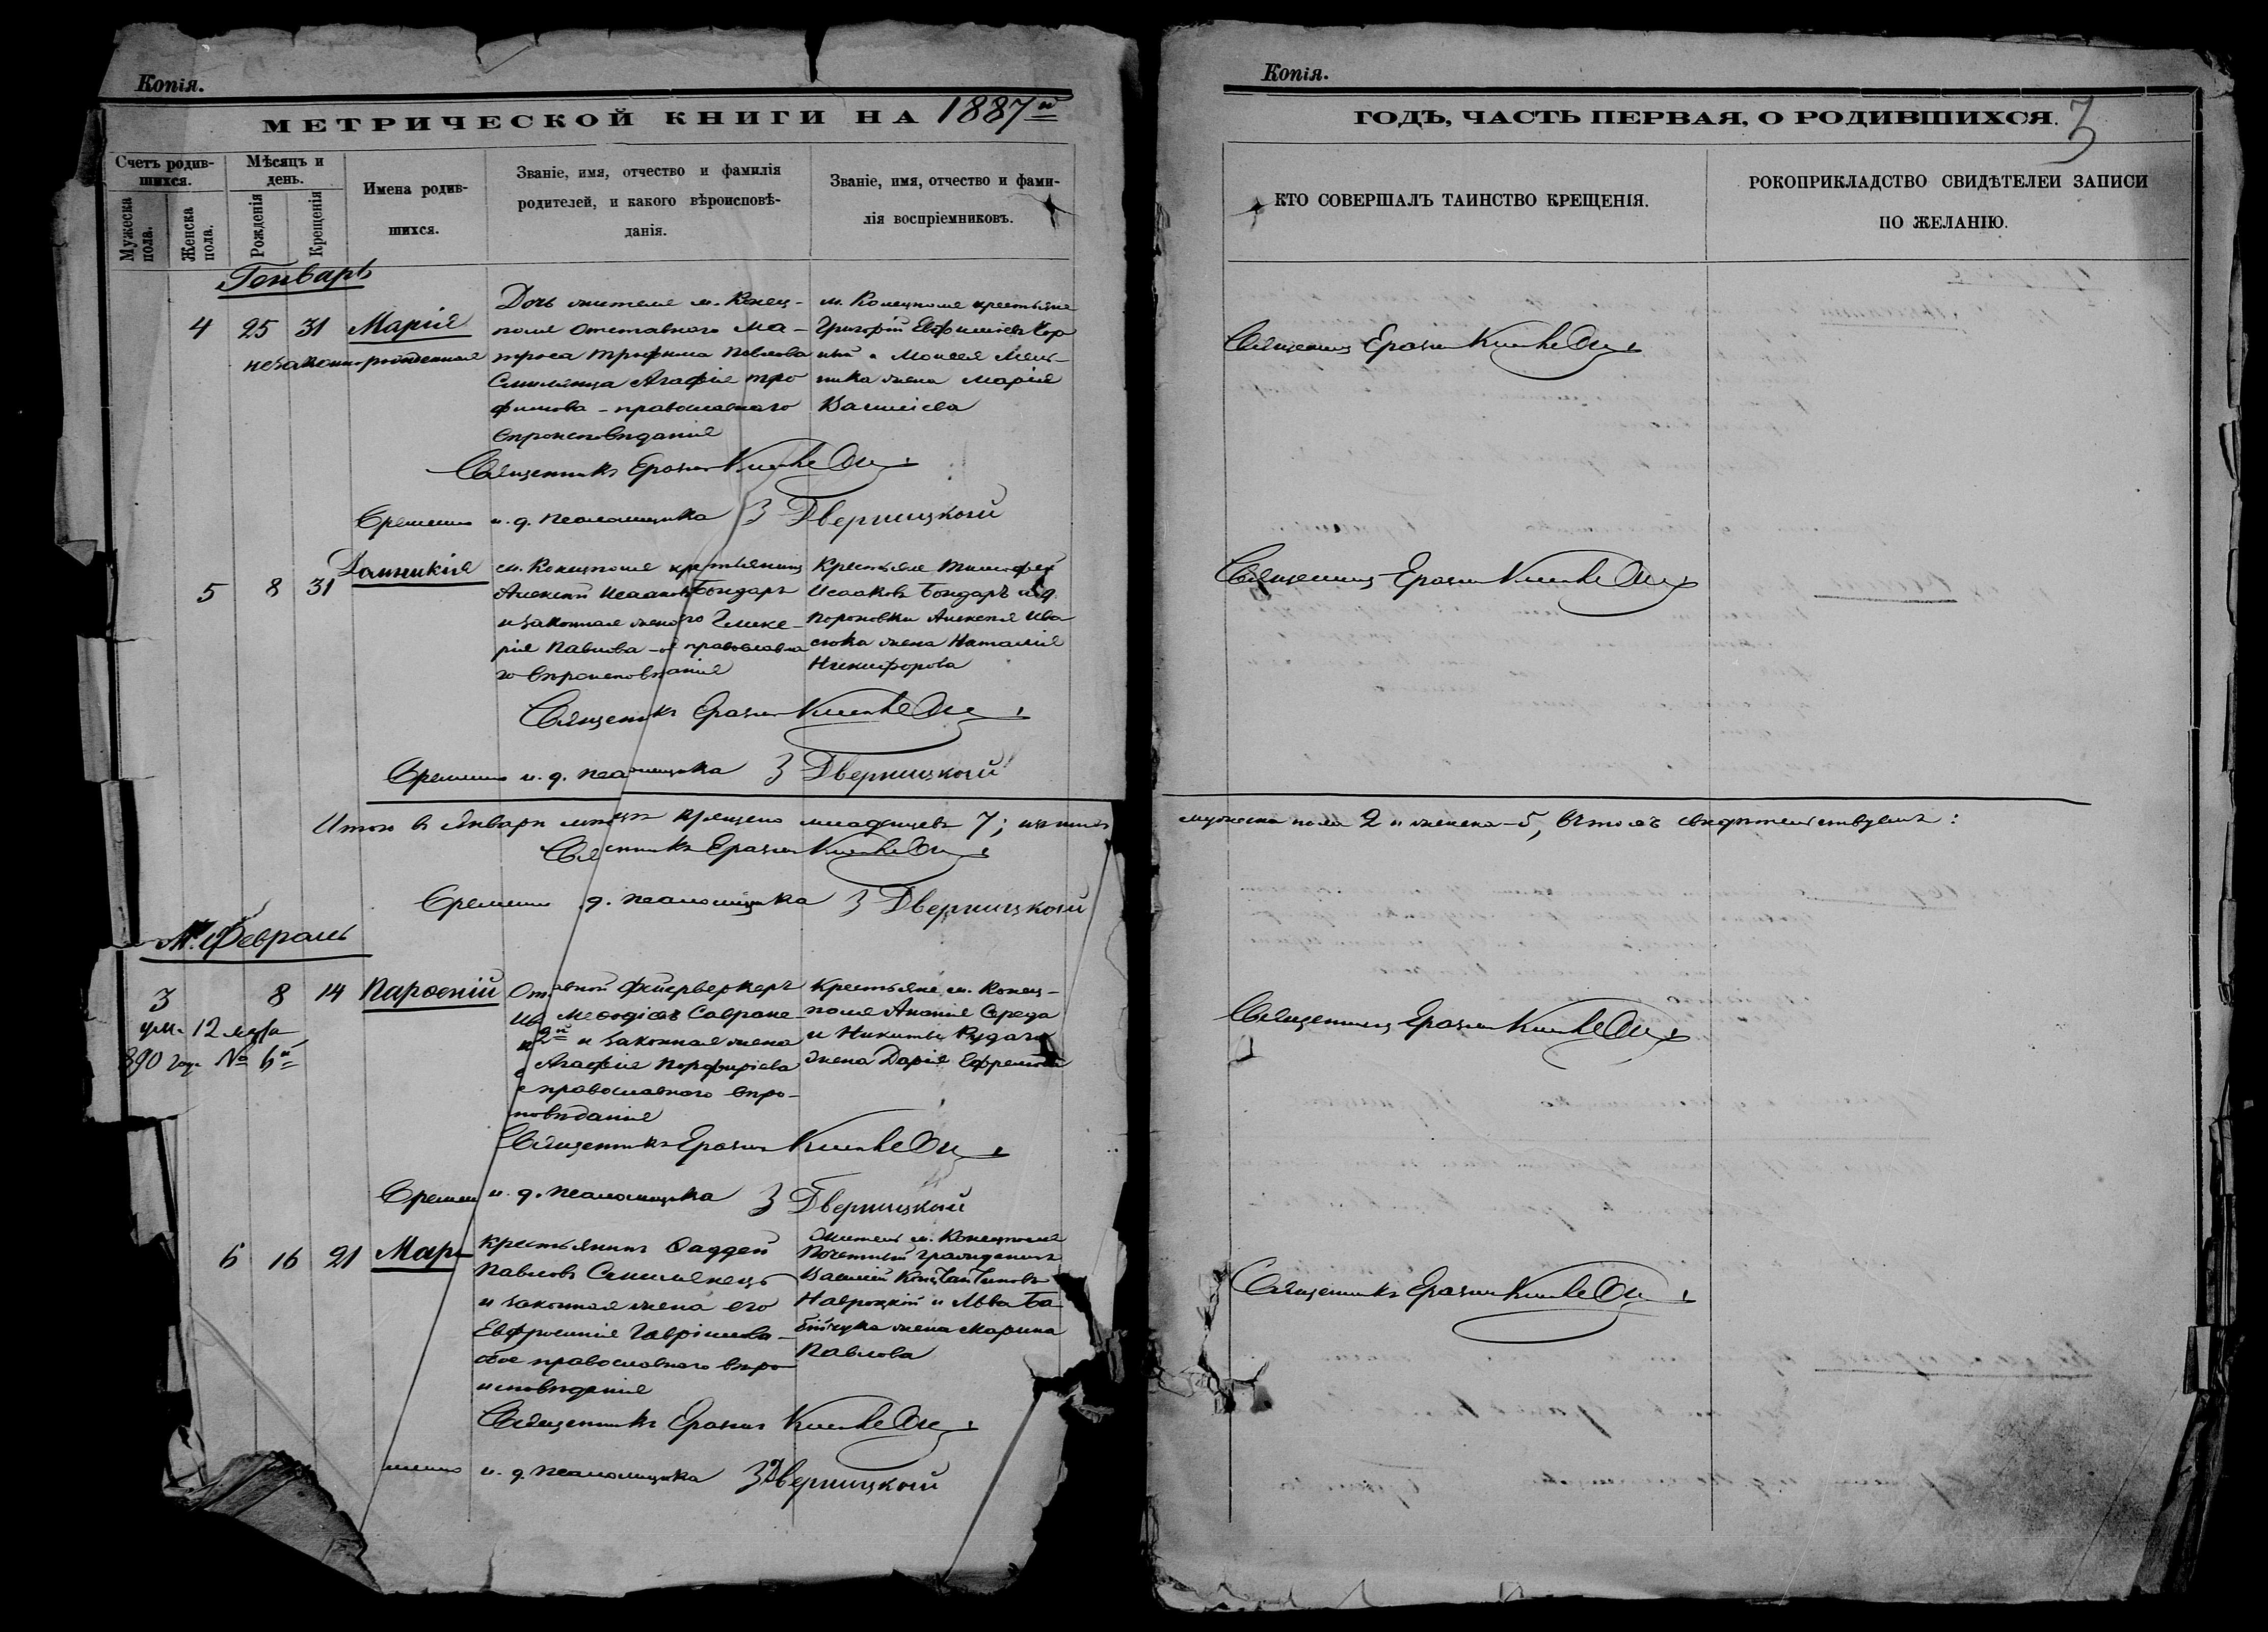 Копія.
МЕТРИЧЕСКОЙ КНИГИ НА 1887й
Счетъ родив-
шихся.
Мужеска пола.
Женска пола.
Мѣсяцъ и
день.
Рожденія
Крещенія
Имена родив-
шихся.
Званіе, имя, отчество и фамилія
родителей, и какого вѣроисповѣ-
данія.
Званіе, имя, отчество и фами-
лія воспріемниковъ.
Генварь
4 25 31 Марія
незаконно-рожденная
Дочь жителя м. Конец-
поля отставного ма-
троса Трофима Павлова
Смилянца Агафія Тро
фимова - православнаго
вѣроисповѣданія
м. Конецполя крестьяне
Григорій Евфиміевъ
и Моисея Мель-
ника жена Марія
Василіева
Священникъ
Временно и. д. псаломщика З Дверницкый
5 8 31 Домникія
м. Конецполя крестьянинъ
Алексѣй Исааковъ Бондарь
и законная жена его Глике-
рія Павлова - православна
го вѣроисповѣданія
Крестьяне Тимофей
Исааковъ Бондарь и д.
Алексѣя Ива
сюка жена Наталія
Никифорова
Священникъ
Временно и. д. псаломщика З Дверницкый
Итого въ Январѣ мѣсяцѣ крещено младенцевъ 7; изъ нихъ
Временно д. псаломщика З Дверницкый
М. Февраль
3 8 14 Парѳеній
ум. 12 марта
890 года № 6й
фейерверкеръ
Меѳодіевъ Савране
и законная жена
Агафія Порфиріева
православнаго вѣро-
повѣданія
Крестьяне м. Конец-
поля Ананія Середа
и Никиты Рудага
жена Дарія Ефремова
Священникъ
и. д. псаломщика З Дверницкый
6 16 21 Мар-
крестьянинъ Ѳаддей
Павловъ Смилянецъ
и законная жена его
Евфросинія Гавріилова -
обое православнаго вѣро
исповѣданія
Житель м. Конецполя
Почетный гражданинъ
Василій Константиновъ
Навроцкій и Льва Ба
бійчука жена Марина
Павлова
Священникъ
и. д. псаломщика З Дверницкый
Копія.
ГОДЪ, ЧАСТЬ ПЕРВАЯ, О РОДИВШИХСЯ.
3
КТО СОВЕРШАЛЪ ТАИНСТВО КРЕЩЕНІЯ.
РОКОПРИКЛАДСТВО СВИДѢТЕЛЕИ ЗАПИСИ
ПО ЖЕЛАНІЮ.
Священникъ
Священникъ
мужеска пола 2 и женска - 5, въ томъ свидѣтельствуемъ:
Священникъ
Священникъ